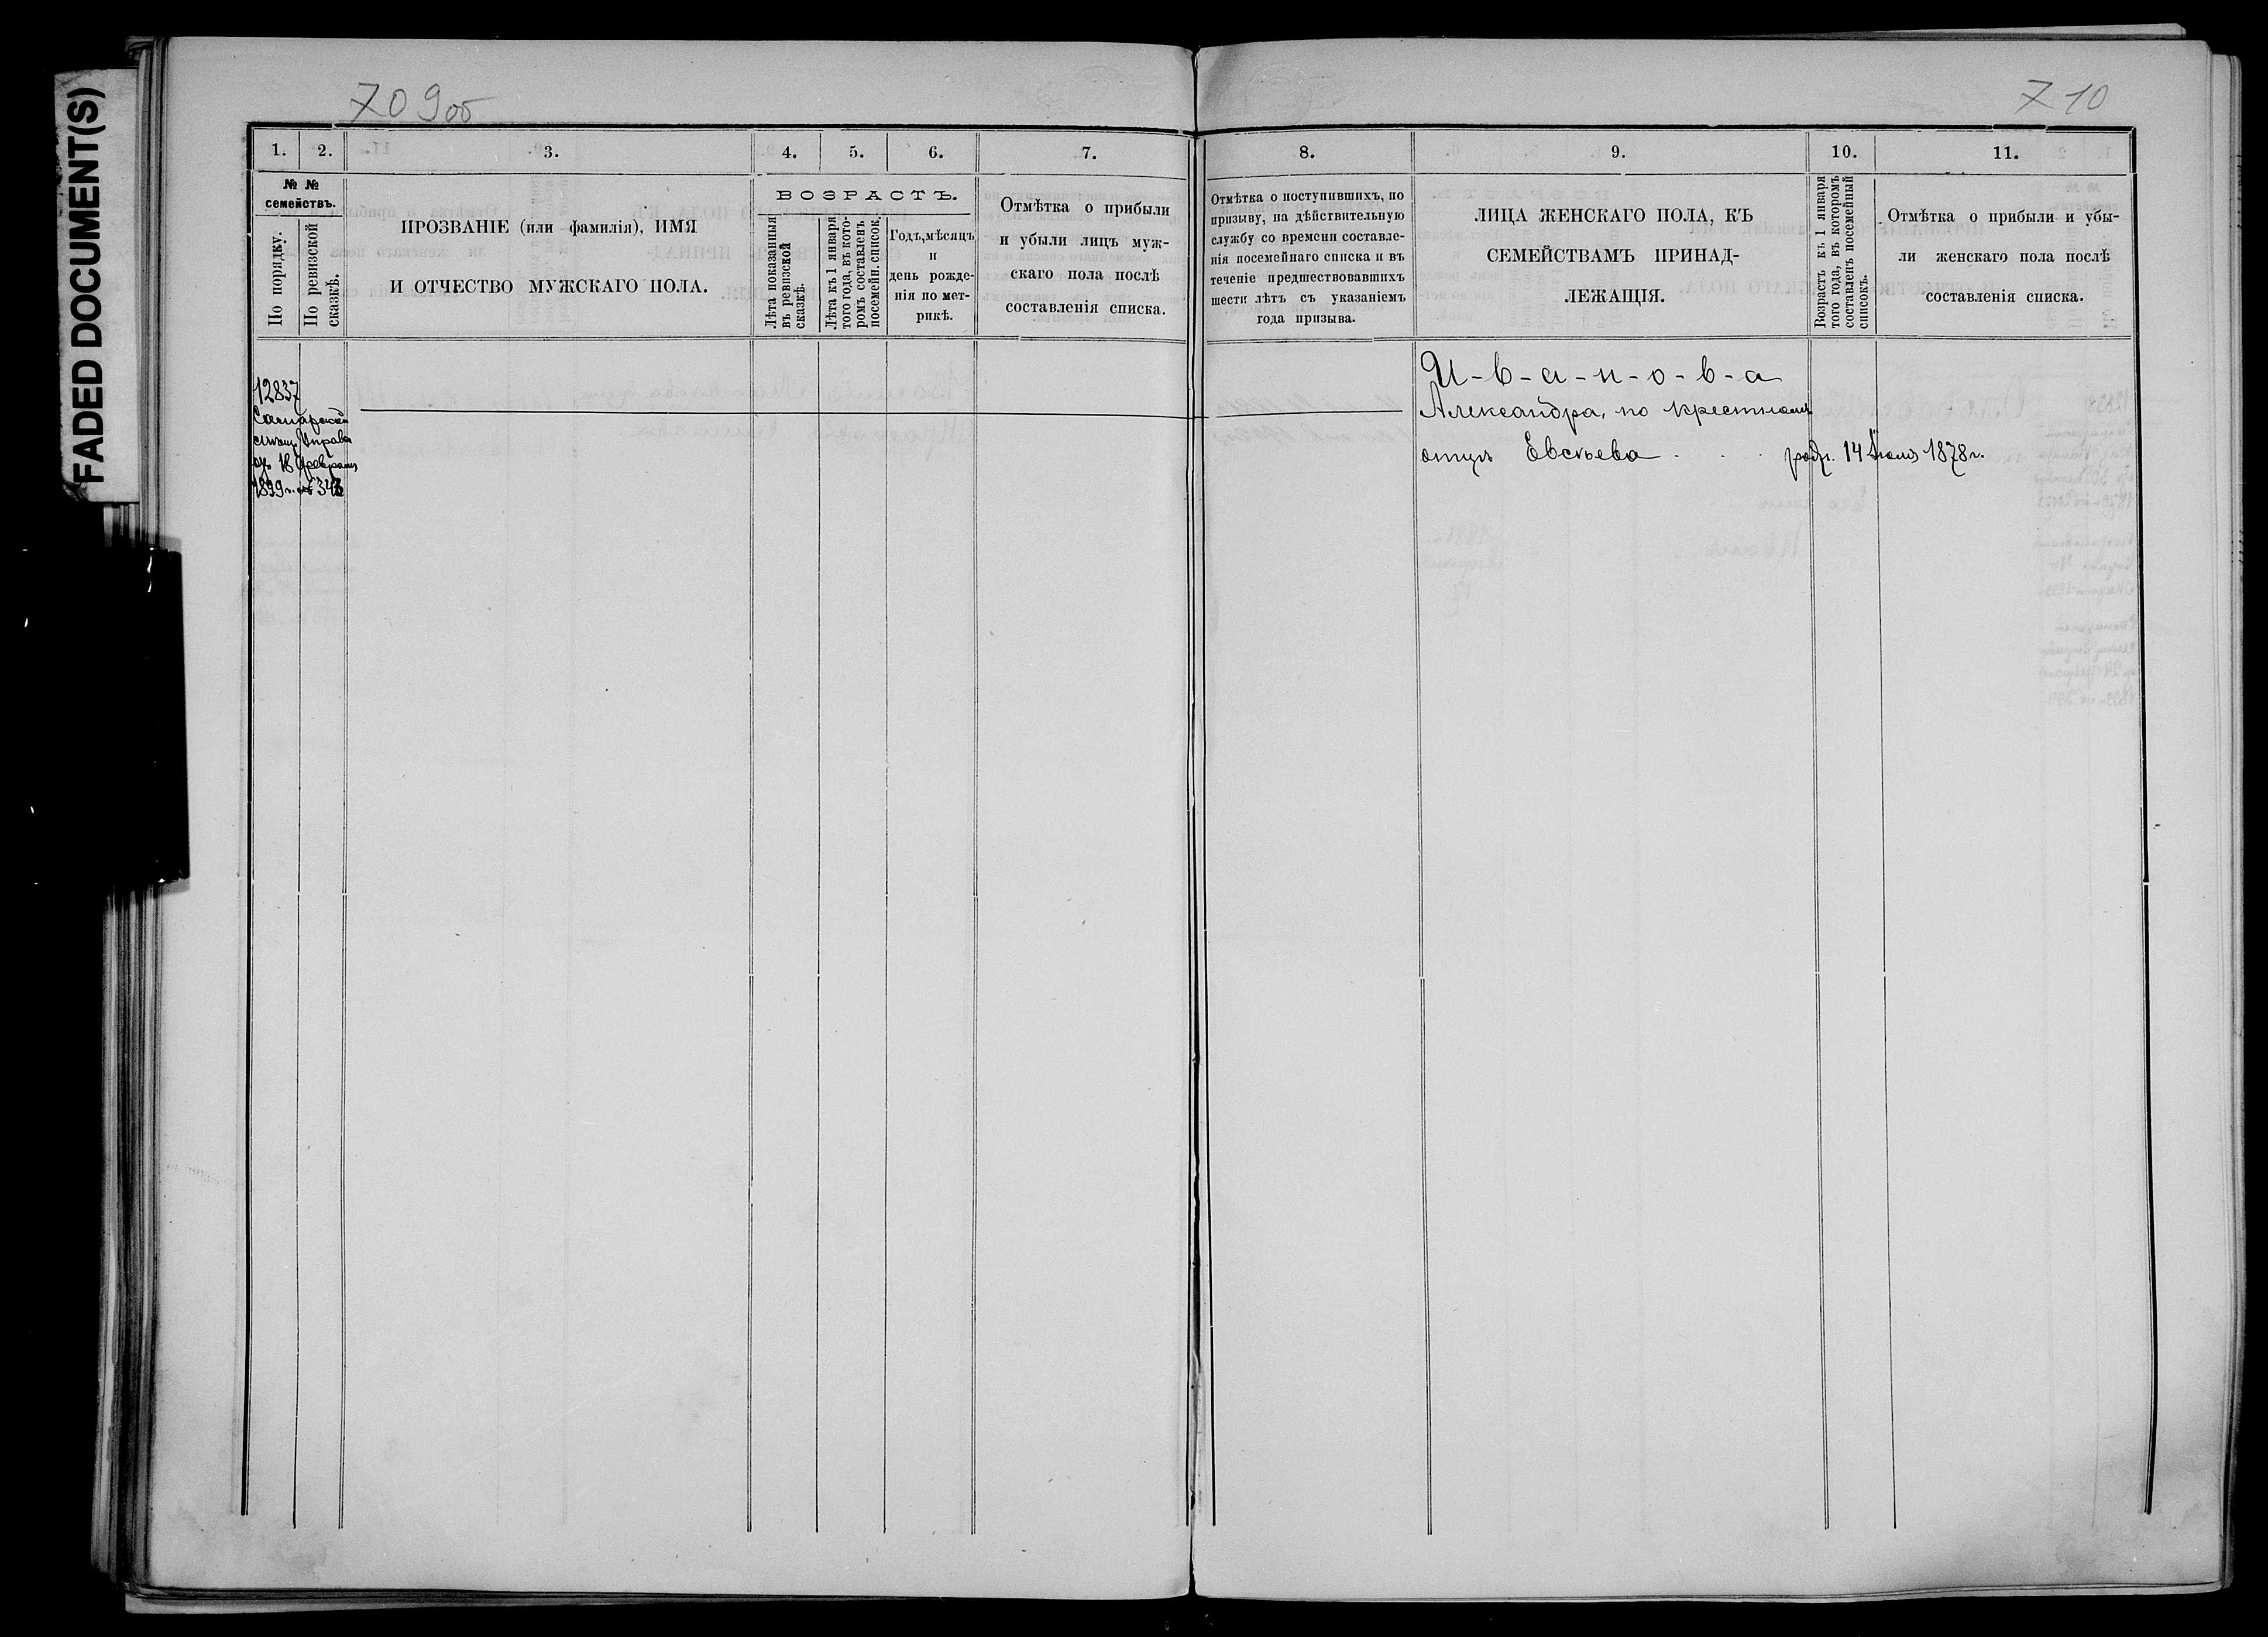 FADED DOCUMENT(S)
709об
710
1. 2. 3. 4. 5. 6. 7.
№ №
семействъ.
По порядку.
По ревизской
сказкѣ.
ПРОЗВАНІЕ (или фамилія), ИМЯ
И ОТЧЕСТВО МУЖСКАГО ПОЛА.
ВОЗРАСТЪ.
Лѣта показанныя
въ ревизской
сказкѣ.
Лѣта къ 1 января
того года, въ кото-
ромъ составленъ
посемейн. список.
Годъ, мѣсяцъ
и
день рожде-
нія по мет-
рикѣ.
Отмѣтка о прибыли
и убыли лицъ муж-
скаго пола послѣ
составленія списка.
12837
Самарской
мѣщ. Управы
18 февраля
1899 г. №
8. 9. 10. 11.
Отмѣтка о поступившихъ, по
призыву, на дѣйствительную
службу со времени составле-
нія посемейнаго списка и въ
теченіе предшествовавшихъ
шести лѣтъ съ указаніемъ
года призыва.
ЛИЦА ЖЕНСКАГО ПОЛА, КЪ
СЕМЕЙСТВАМЪ ПРИНАД-
ЛЕЖАЩІЯ.
Возрастъ къ 1 января
того года, въ которомъ
составленъ посемейный
списокъ.
Отмѣтка о прибыли и убы-
ли женскаго пола послѣ
составленія списка.
И-в-а-н-о-в-а
Александра, по крестному
отцу Евсѣева . . . род. 14 1878 г.